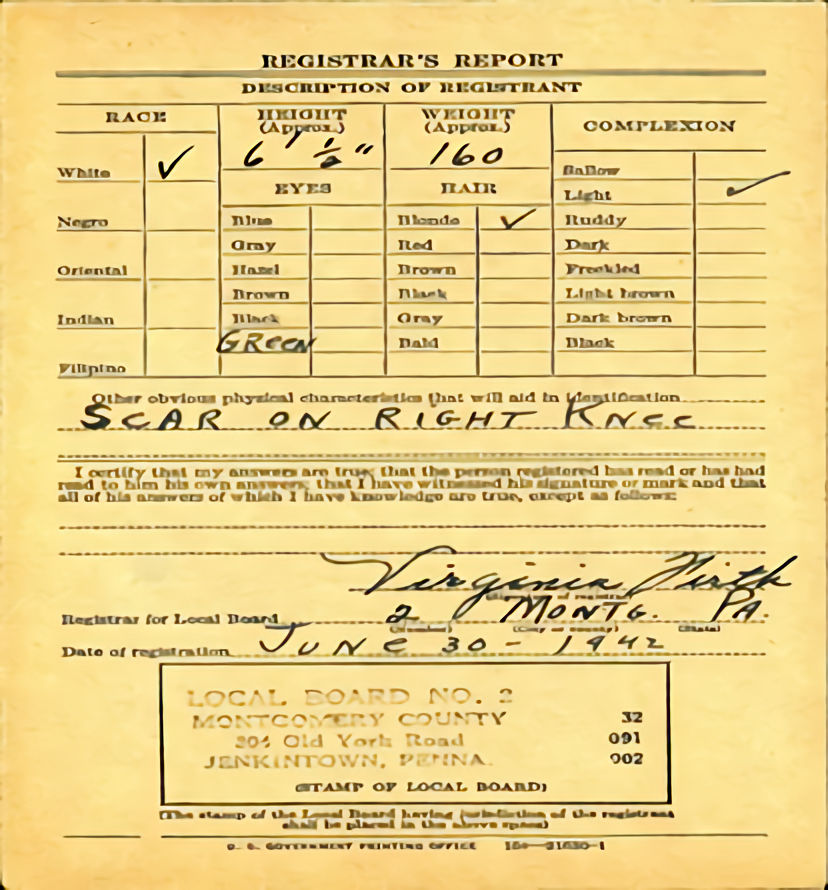 REGISTRAR'S REPORT
DESCRIPTION OF REGISTRANT
RACE
HEIGHT (Approx.)
WEIGHT (Approx.)
COMPLEXION
6' ½"
160
White ✓
EYES
HAIR
Sallow
Light ✓
Negro
Blue
Blonde ✓
Ruddy
Gray
Red
Dark
Oriental
Hazel
Brown
Freckled
Brown
Black
Light brown
Indian
Black
Gray
Dark brown
GREEN
Bald
Black
Filipino
Other obvious physical characteristics that will aid in identification
SCAR ON RIGHT KNEE
I certify that my answers are true; that the person registered has read or has had
read to him his own answers; that I have witnessed his signature or mark and that
all of his answers of which I have knowledge are true, except as follows:
Virginia Firth
(Signature of registrar)
Registrar for Local Board 2 MONTG. PA.
(Number) (City or county) (State)
Date of registration JUNE 30 - 1942
LOCAL BOARD NO. 2
MONTGOMERY COUNTY 32
304 Old York Road 091
JENKINTOWN, PENNA. 002
(STAMP OF LOCAL BOARD)
(The stamp of the Local Board having jurisdiction of the registrant
shall be placed in the above space)
U. S. GOVERNMENT PRINTING OFFICE 16—21630-1